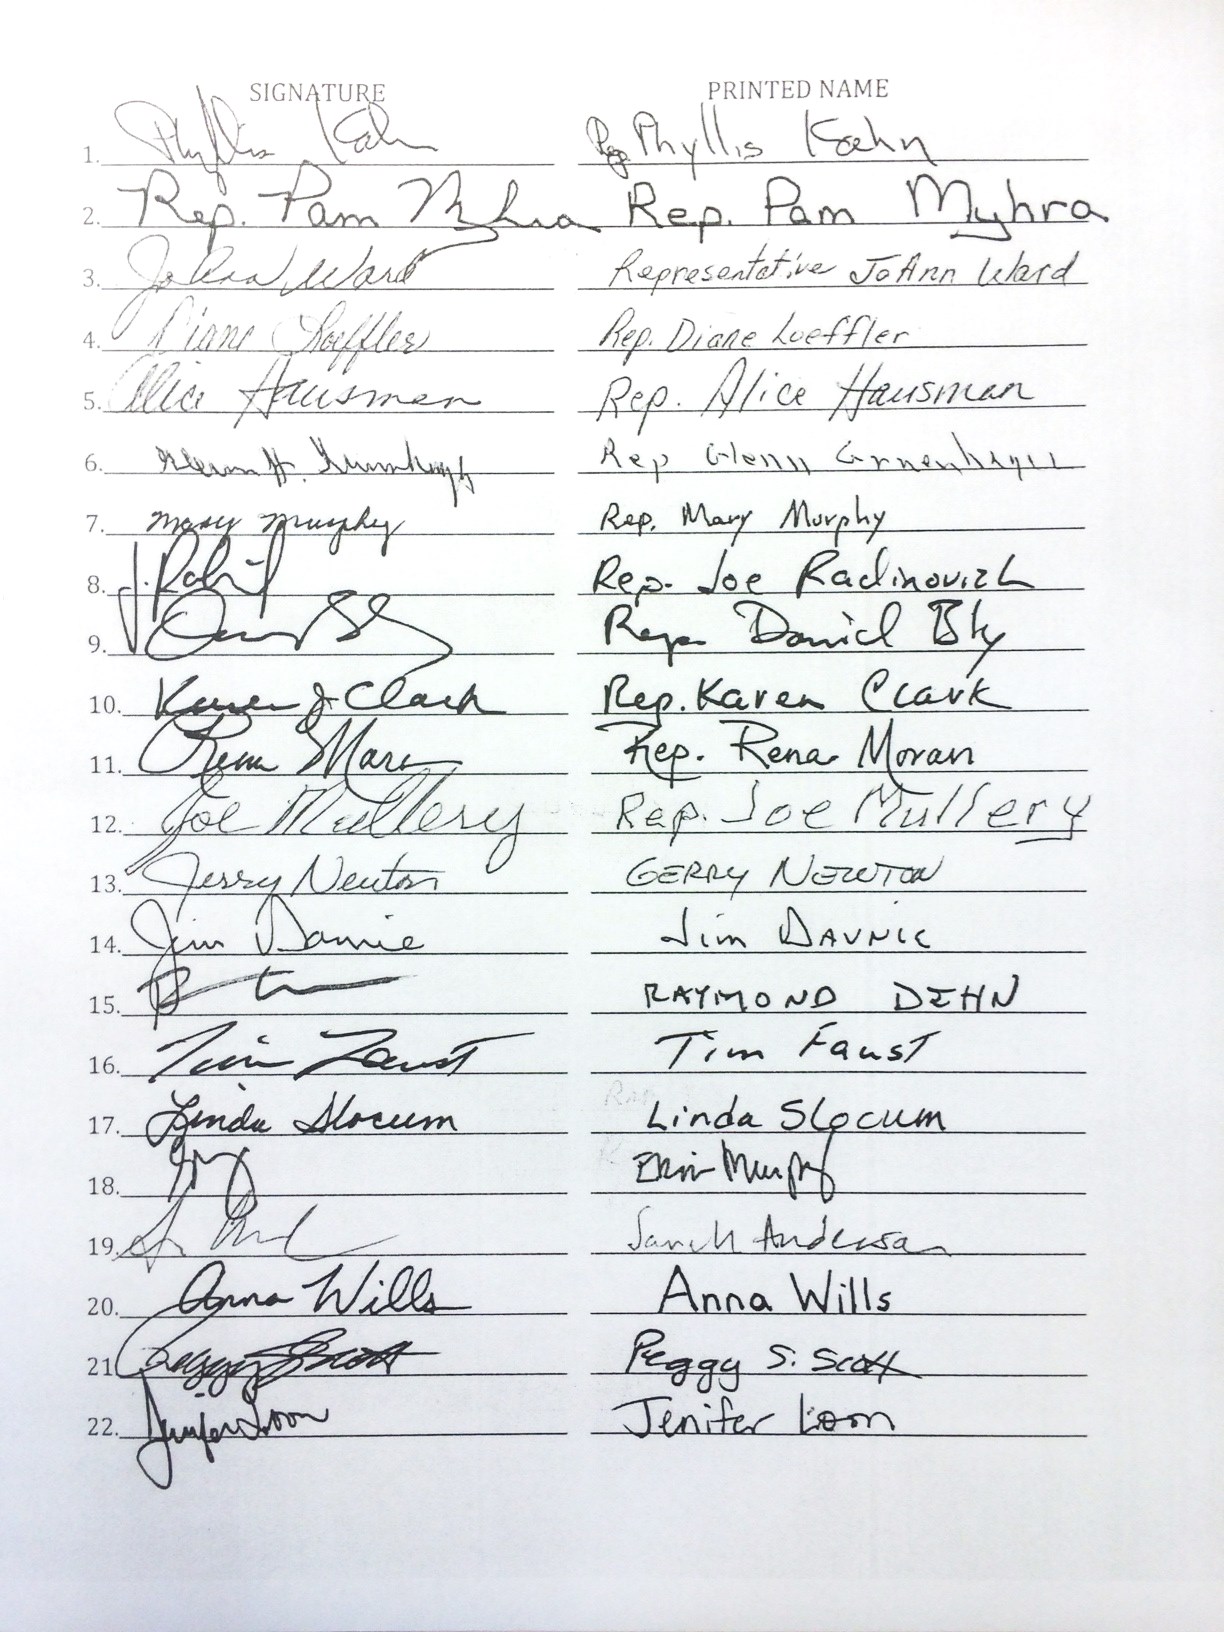 SIGNATURE PRINTED NAME
1. Phyllis Kahn Rep Phyllis Kahn
2. Rep. Pam Myhra Rep. Pam Myhra
3. JoAnn Ward Representative JoAnn Ward
4. Diane Loeffler Rep. Diane Loeffler
5. Alice Hausman Rep. Alice Hausman
6. Glenn H. Gruenhagen Rep Glenn Gruenhagen
7. Mary Murphy Rep. Mary Murphy
8. Rep. Joe Radinovich
9. Rep. Daniel Bly
10. Karen J Clark Rep. Karen Clark
11. Rena Moran Rep. Rena Moran
12. Joe Mullery Rep. Joe Mullery
13. Jerry Newton GERRY NEWTON
14. Jim Davnie Jim DAVNIE
15. RAYMOND DEHN
16. Tim Faust Tim Faust
17. Linda Slocum Linda Slocum
18. Erin Murphy
19. Sarah Anderson
20. Anna Wills Anna Wills
21. Peggy Scott Peggy S. Scott
22. Jenifer Loon Jenifer Loon